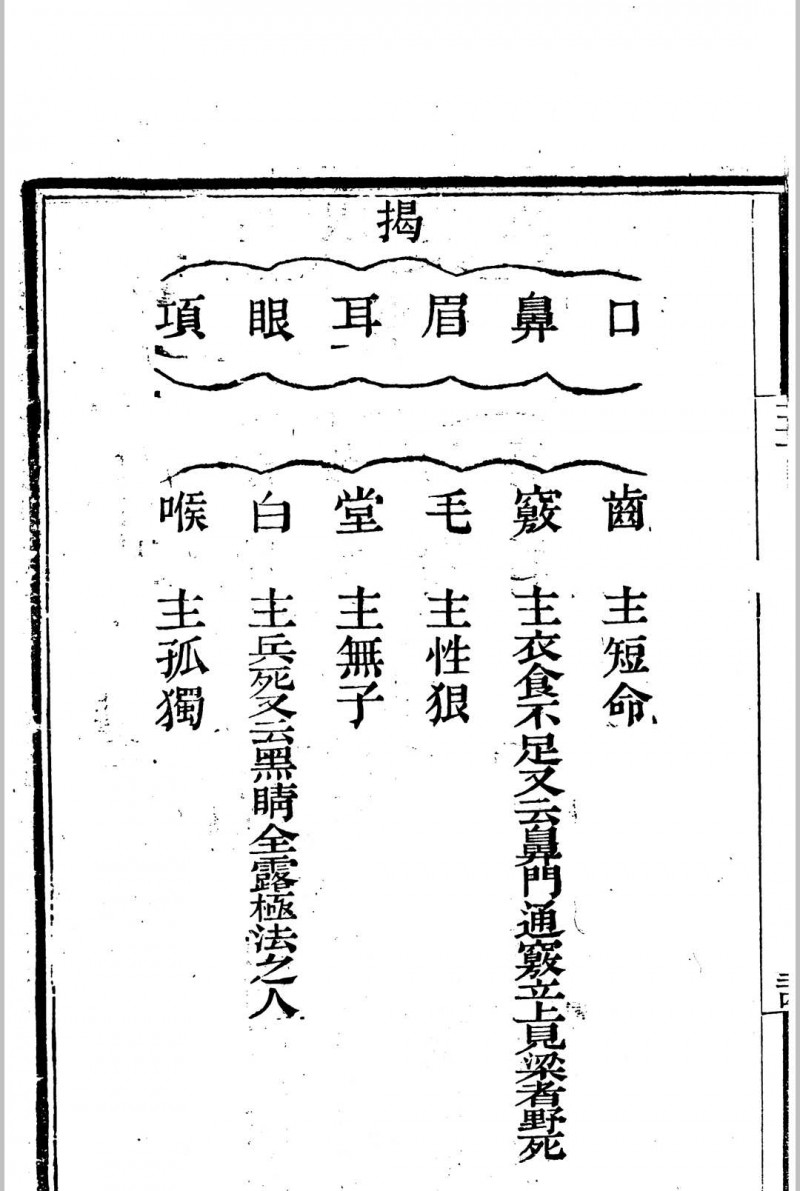 揭
口齒主短命
鼻竅主衣食不足又云鼻門通竅立上見梁者野死
眉毛主性狠
耳堂主無子
眼白主兵死又云黑睛全露極法之人
項喉主孤獨